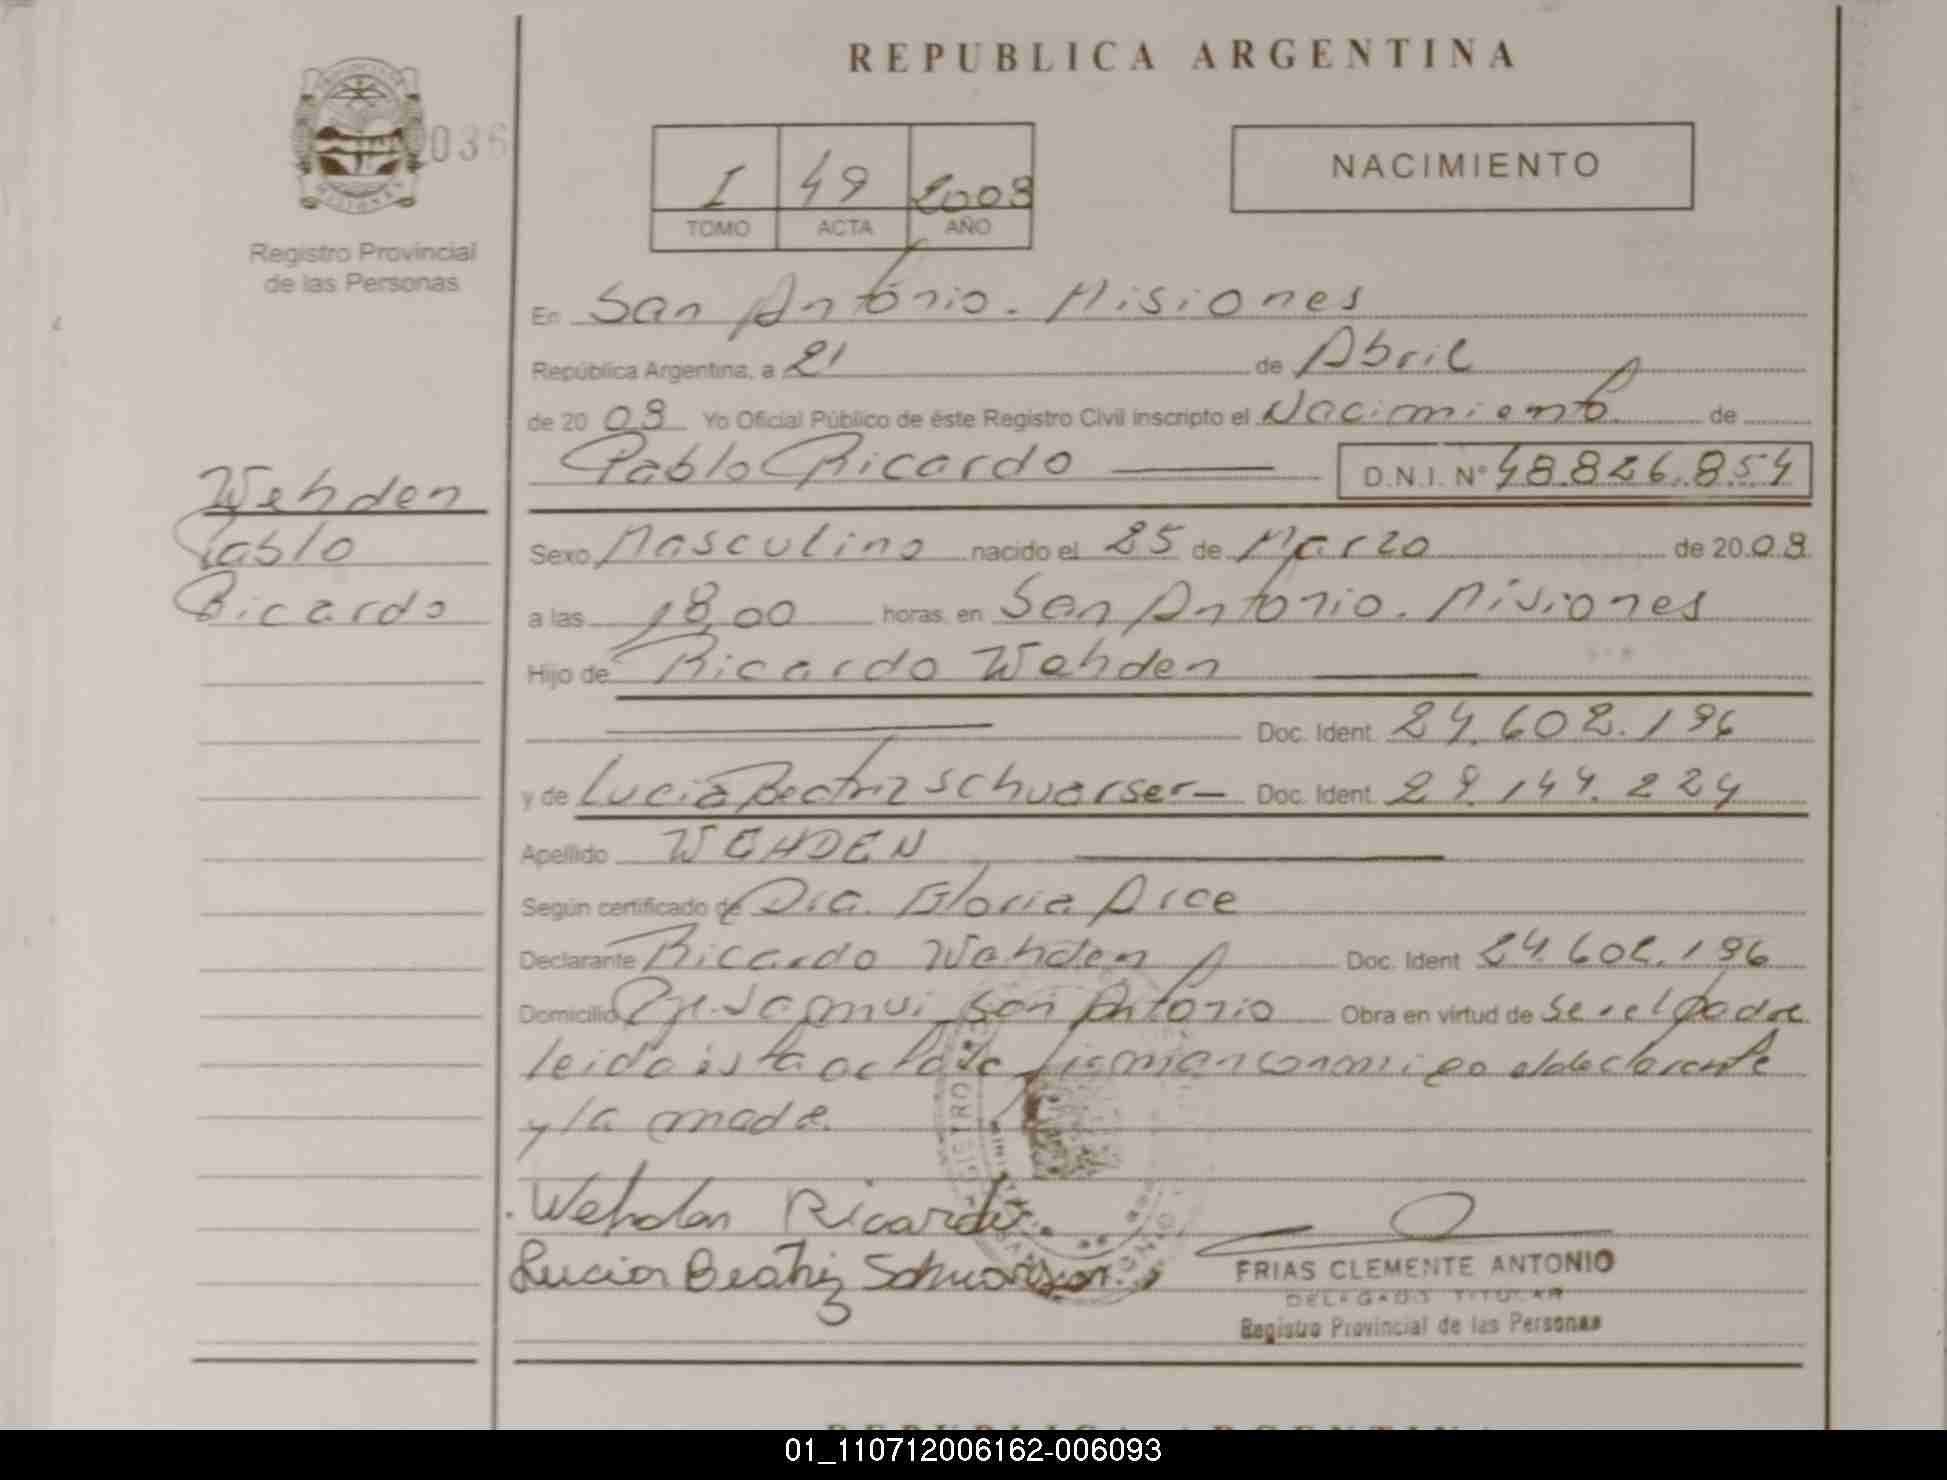 REPUBLICA ARGENTINA
036
Registro Provincial
de las Personas
I 49
TOMO ACTA AÑO
NACIMIENTO
En San Antonio. Misiones
República Argentina, a 21 de Abril
de 20 Yo Oficial Público de éste Registro Civil inscripto el Nacimiento de
Pablo Ricardo D.N.I. Nº 48.826.854
Wehden
Pablo
Ricardo
Sexo Masculino nacido el 25 de Marzo de 20
a las 18,00 horas. en San Antonio. Misiones
Hijo de Ricardo Wehden
Doc. Ident. 24.602.196
y de Lucia Beatriz Schuarser Doc. Ident. 29.144.224
Apellido WEHDEN
Según certificado de Dra. Gloria Arce
Declarante Ricardo Wehden Doc. Ident 24.602.196
Domicilio San Antonio Obra en virtud de ser el padre
leida esta acta la firman conmigo el declarante
y la madre.
Wehden Ricardo
Lucia Beatriz
FRIAS CLEMENTE ANTONIO
DELEGADO TITULAR
Registro Provincial de las Personas
01_110712006162-006093